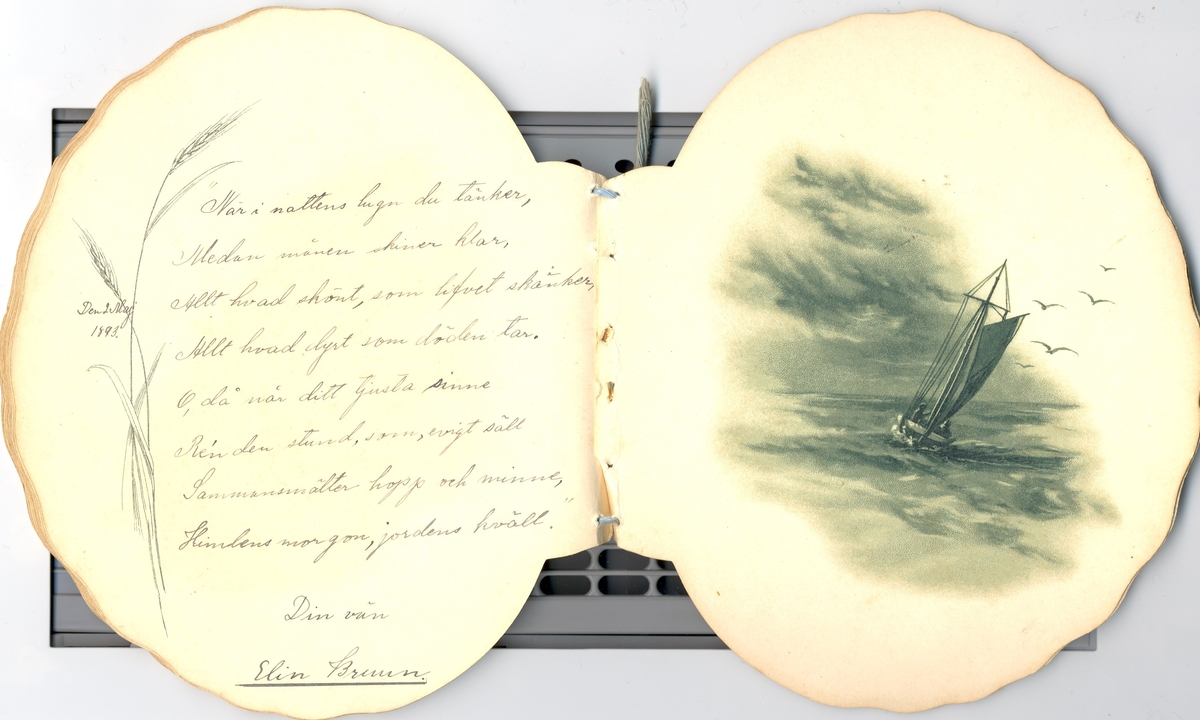 "När i nattens lugn du tänker,
Medan månen skiner klar,
Allt hvad skönt, som lifvet skänker,
Allt hvad dyrt som döden tar.
O, då når ditt tjusta sinne
Ren den stund, som, evigt säll
Sammansmälter hopp och minne,
Himlens morgon, jordens kväll."
Din vän
Elin Bruun.
Den 2 Maj
1893.